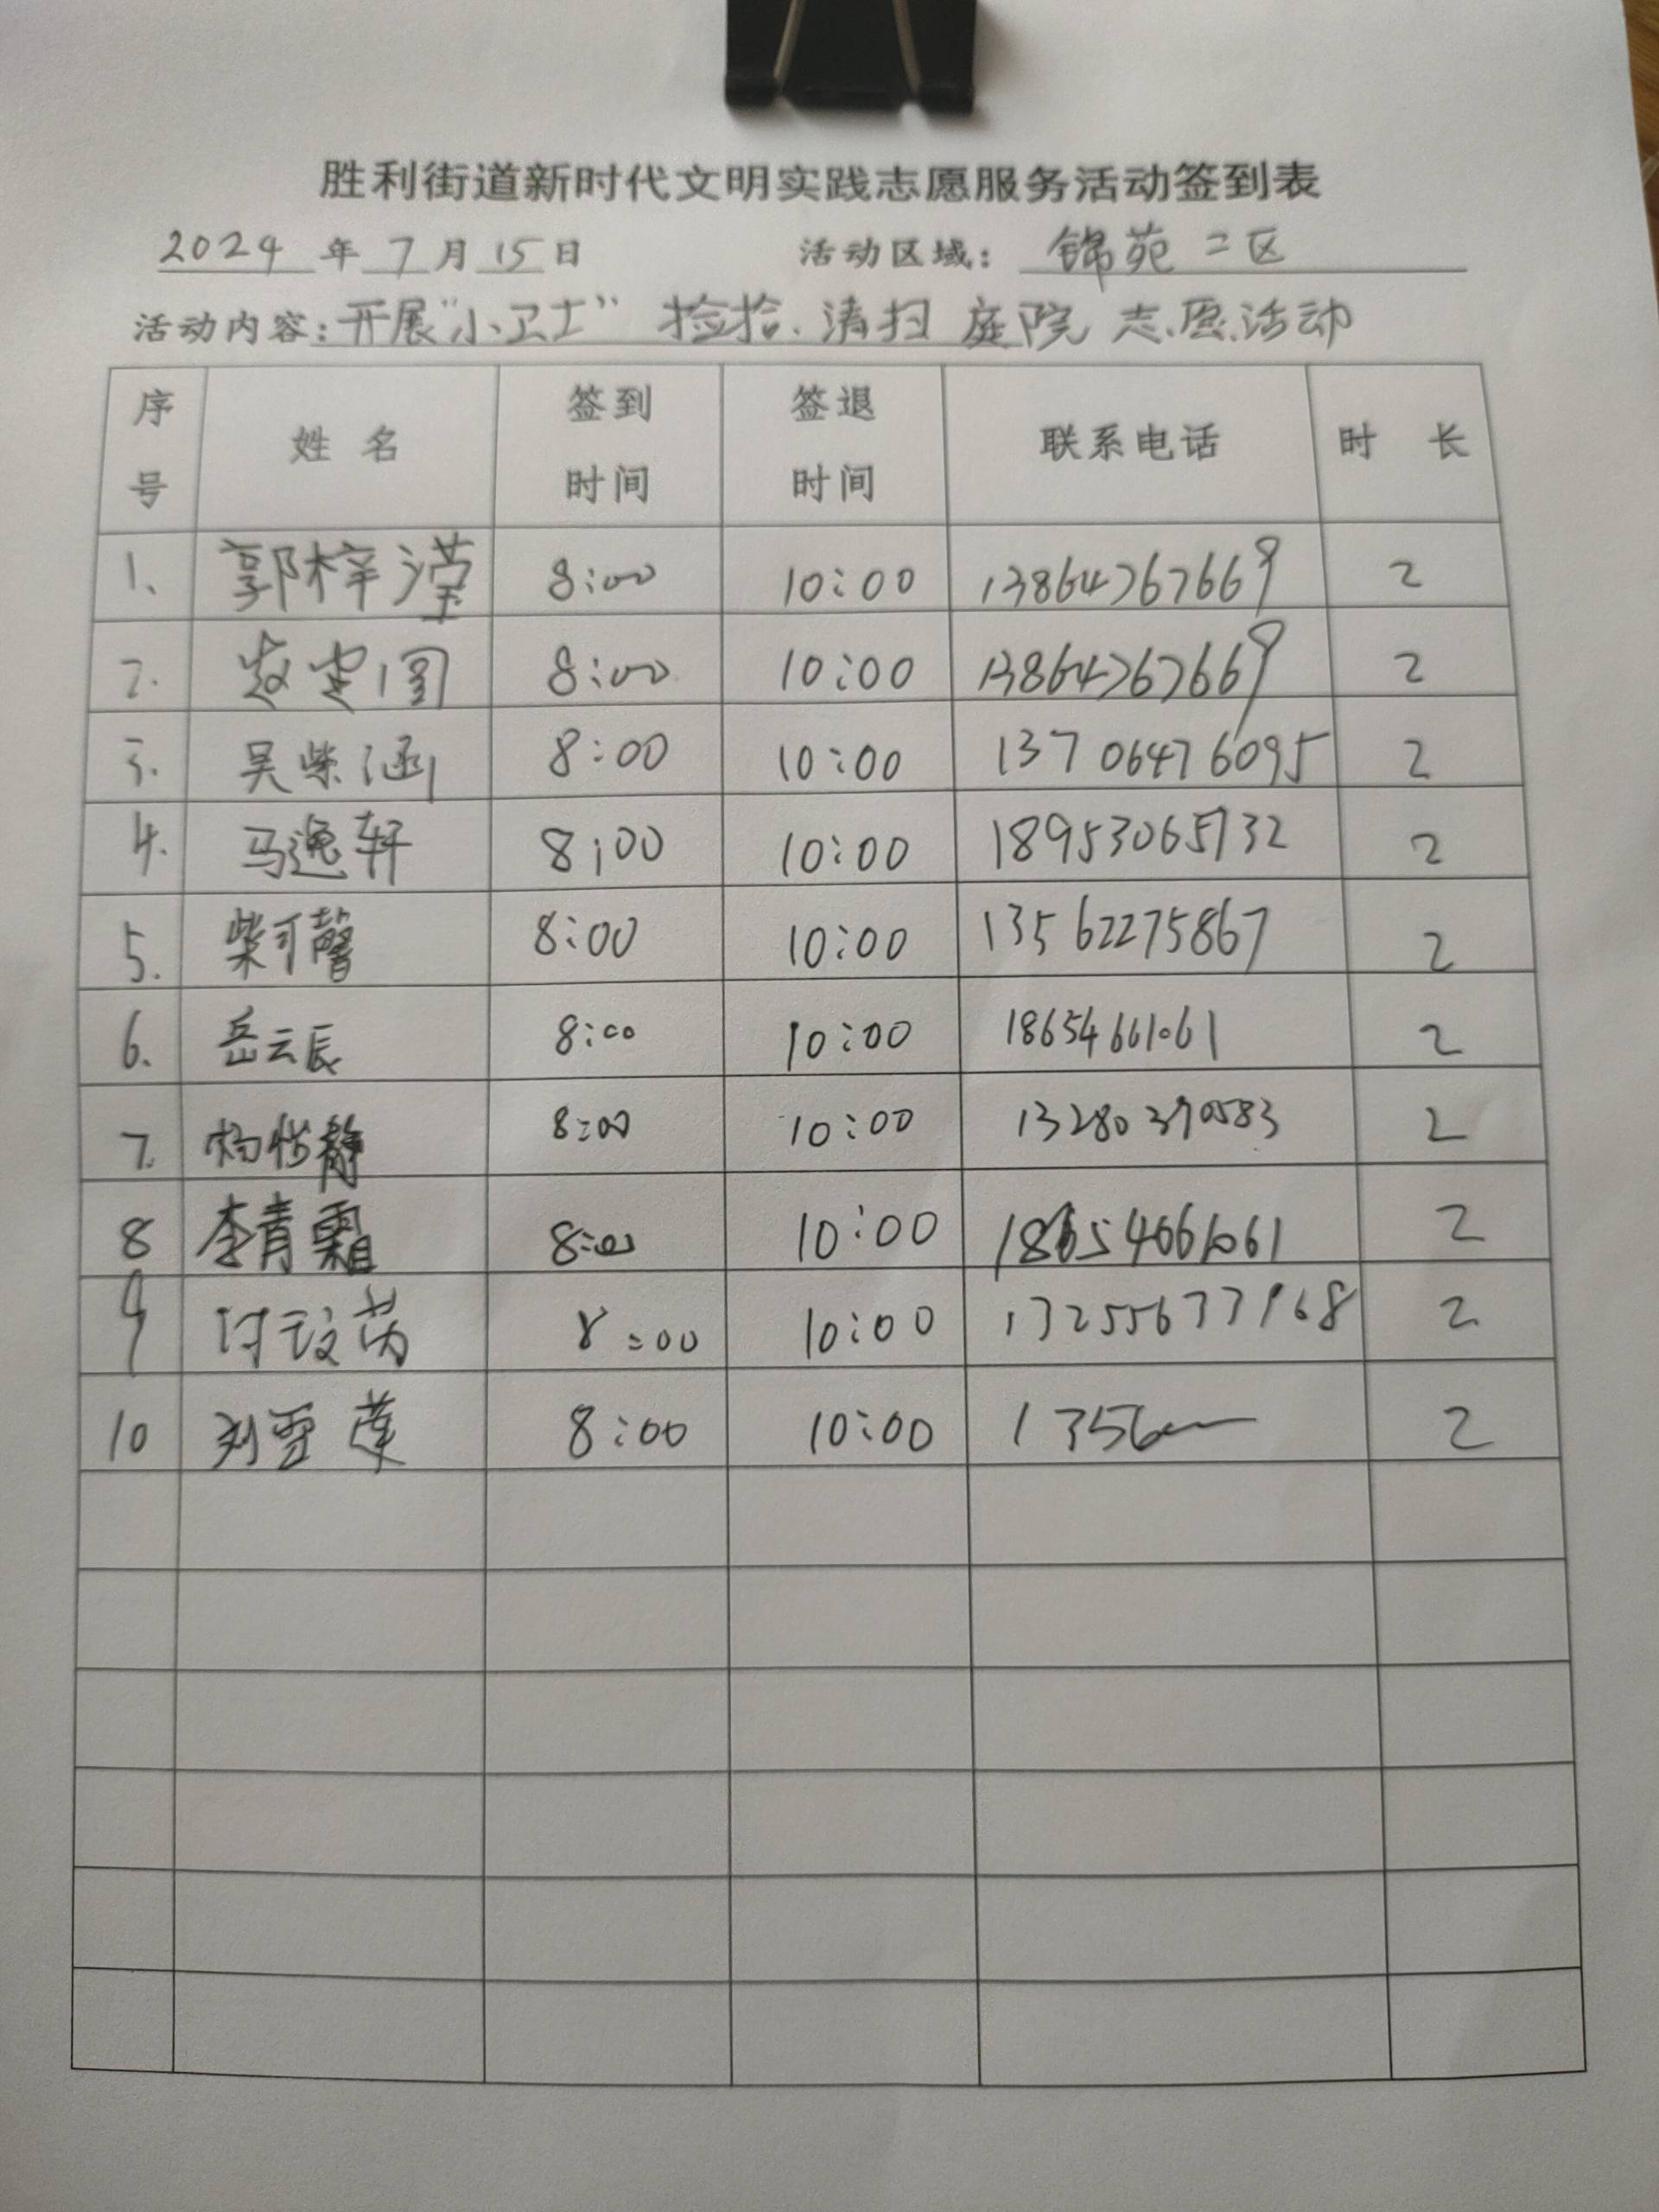 胜利街道新时代文明实践志愿服务活动签到表
2024 年 7 月 15 日 活动区域: 锦苑二区
活动内容:开展"小卫士"捡拾、清扫庭院志愿活动
序号 姓名 签到时间 签退时间 联系电话 时长
1. 郭梓滢 8:00 10:00 13864767669 2
2. 8:00 10:00 13864767669 2
3. 吴柴涵 8:00 10:00 13706476095 2
4. 马逸轩 8:00 10:00 18953065732 2
5. 柴可馨 8:00 10:00 13562275867 2
6. 岳云辰 8:00 10:00 18654661061 2
7. 8:00 10:00 13280370583 2
8 李青霜 8:00 10:00 18654661061 2
9 8:00 10:00 2
10 刘雪莲 8:00 10:00 1356 2